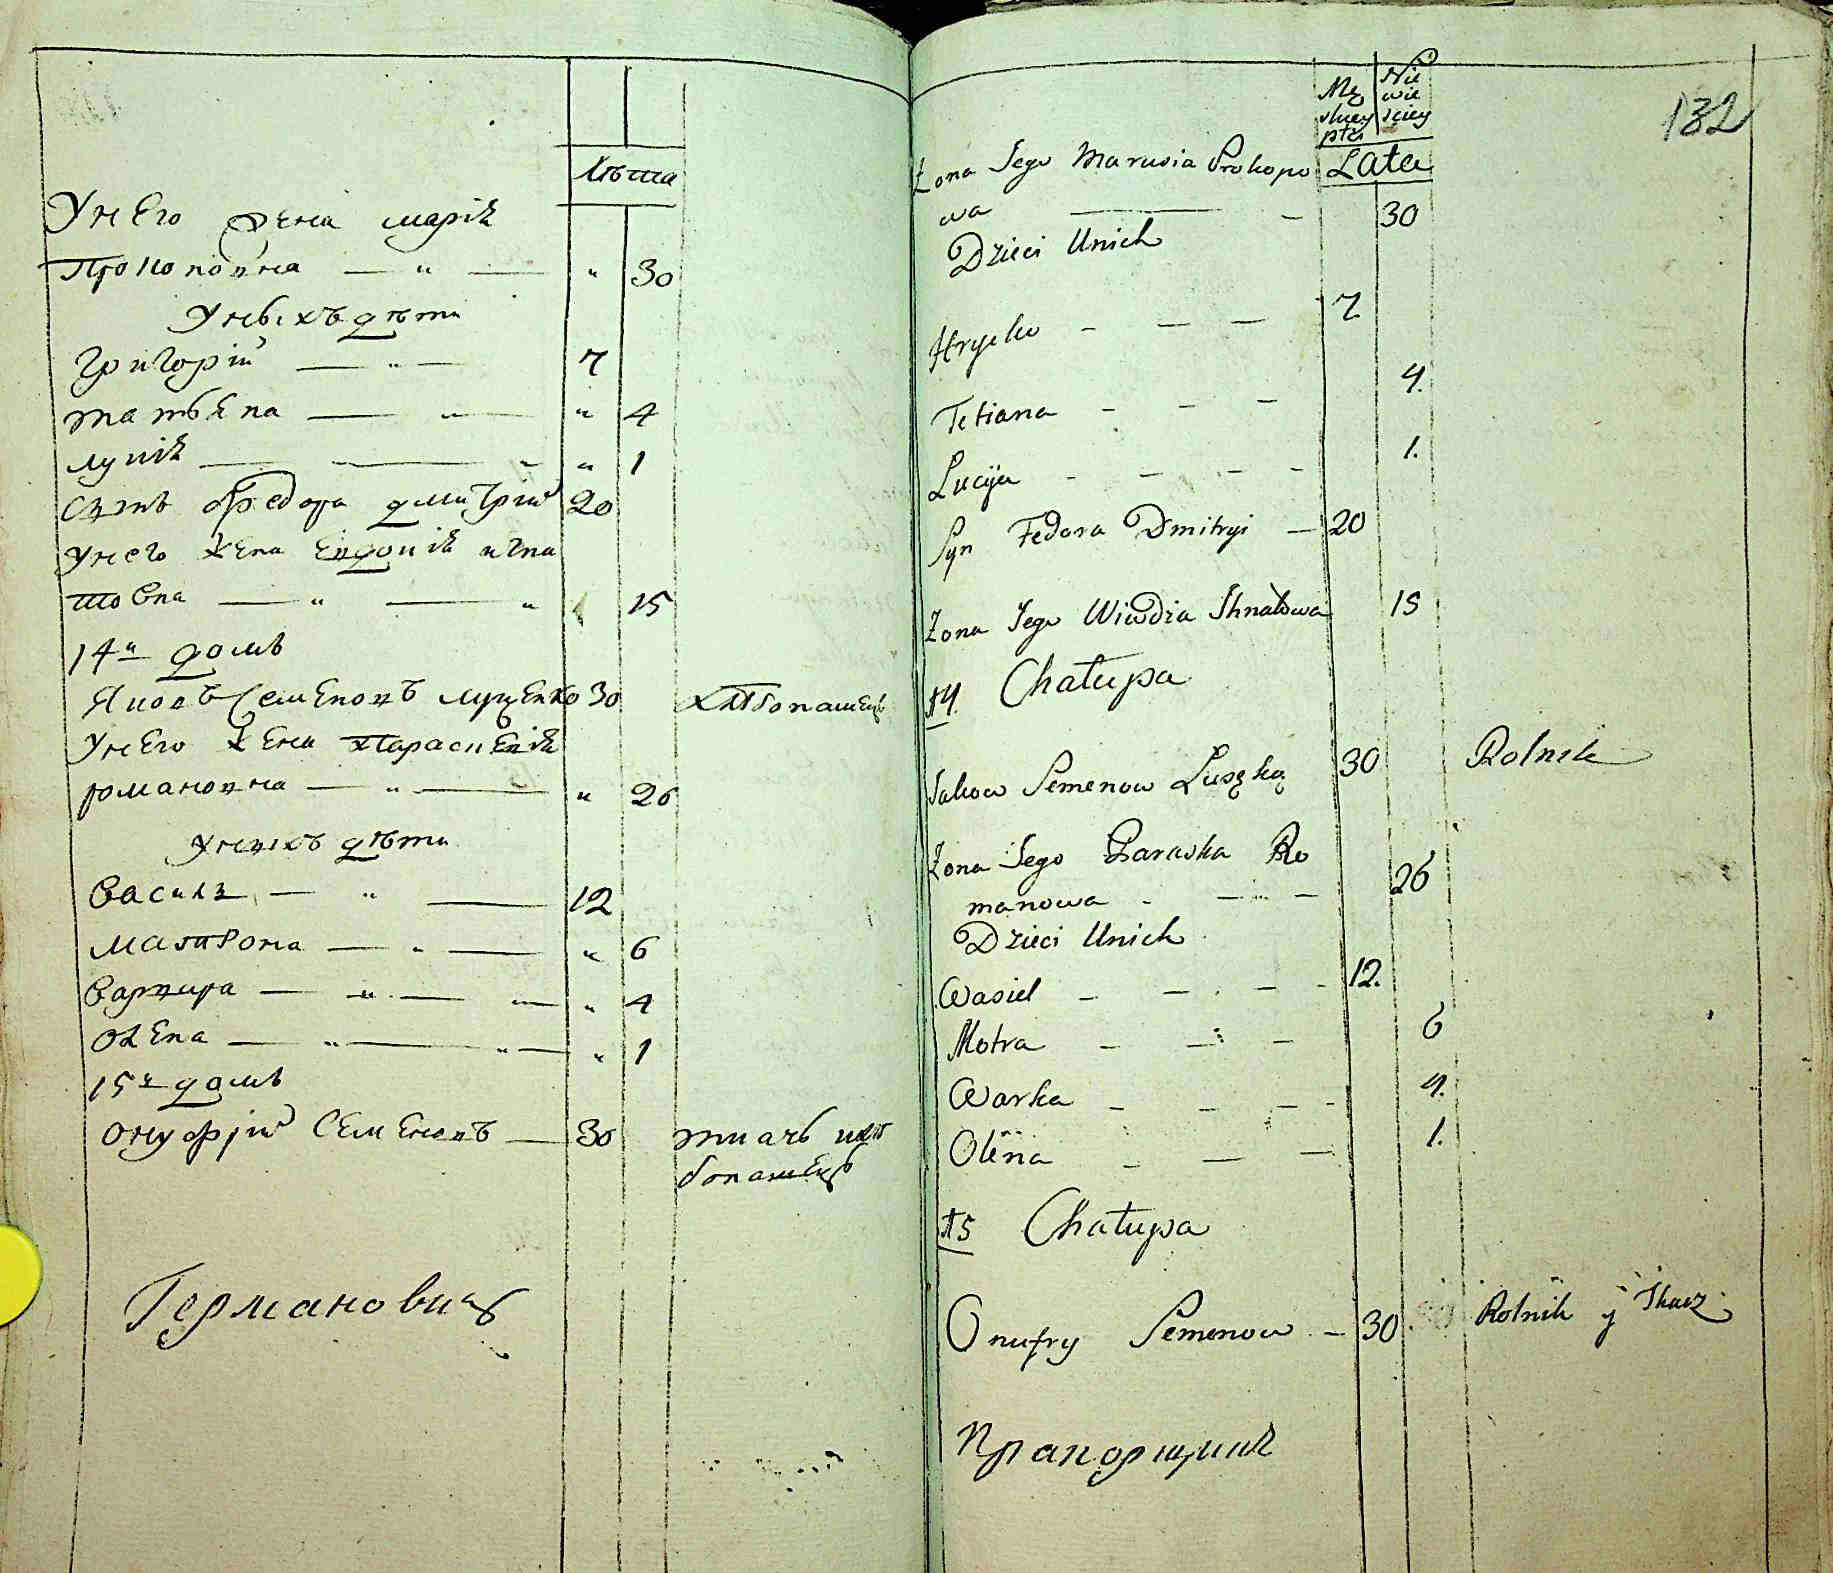 Лѣта
У него жена марія
Прокоповна — " — " 30
У ныхъ дѣти
Григорій — " — 7
татьяна — " — " 4
луція — — " " 1
Сынъ Федора дмитрій 20
У него жена Евдокія игна
товна — " — " 15
14й домъ
Яковъ Семеновъ луценко 30 хлѣбопашецъ
У него жена Параскевія
романовна — " — " 26
У нихъ дѣти
Василь — " — 12
Матрона — " — " 6
Варвара — " — " 4
Олена — " — " — " 1
15й домъ
Онуфрій Семеновъ — 30 ткачь и хлѣ
бопашецъ
Германович
132
Mę Nie
skiey wie
płci sciey
Lata
Żona Jego Marusia Prokopo
wa — - 30
Dzieci Unich
Hrycko - - - 7
Tetiana - - - 4.
Lucija - - - - 1.
Syn Fedora Dmitryi - 20
Żona Jego Wiwdia Ihnatowa 15
14. Chałupa
Jakow Semenow 30 Rolnik
Żona Jego Paraska Ro
manowa - - - 26
Dzieci Unich
Wasiel - - - - 12.
Motra - - - 6
Warka - - - - 4.
Olena - - - 1.
15 Chałupa
Onufry Semenow - 30. Rolnik y Tkacz
Прапорщикъ